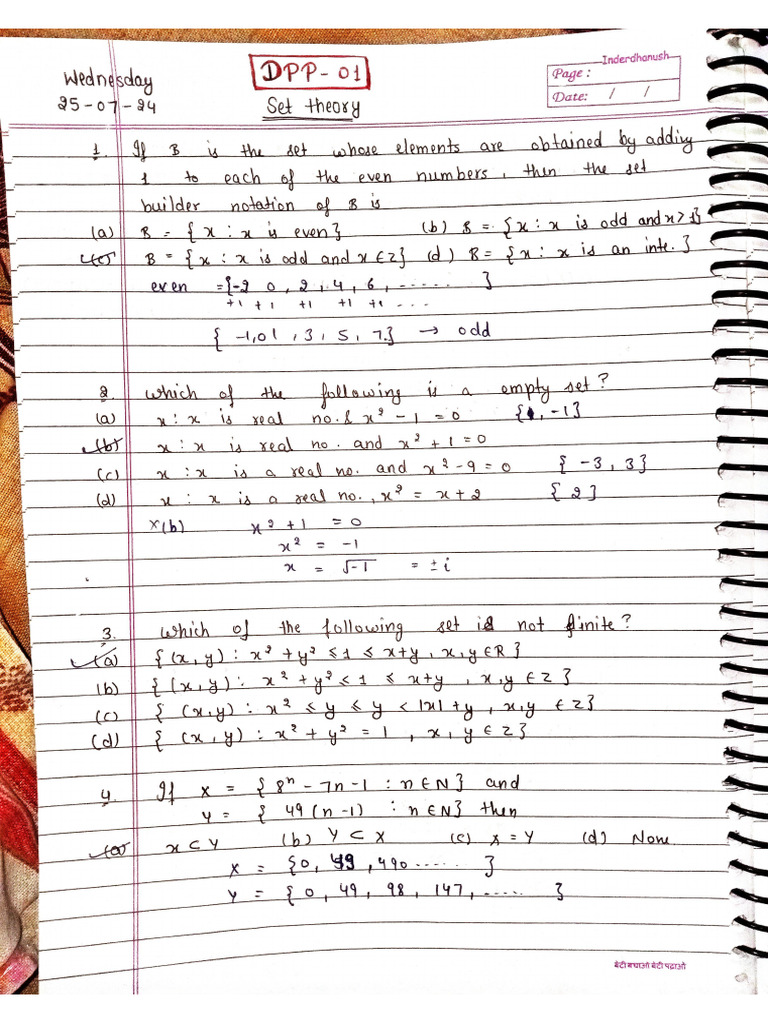 Inderdhanush
Page :
Date: / /
Wednesday
25-07-24
DPP-01
Set theory
1. If B is the set whose elements are obtained by adding
1 to each of the even numbers, then the set
builder notation of B is
(a) B = {x : x is even} (b) B = {x : x is odd and x > 1}
(c) B = {x : x is odd and x ∈ Z} (d) B = {x : x is an inte.}
even = {-2 0, 2, 4, 6, ...... }
+1 +1 +1 +1 +1 ...
{ -1, 01, 3, 5, 7.} → odd
2. Which of the following is a empty set?
(a) x : x is real no. & x² - 1 = 0 {1, -1}
(b) x : x is real no. and x² + 1 = 0
(c) x : x is a real no. and x² - 9 = 0 {-3, 3}
(d) x : x is a real no., x² = x + 2 {2}
x(b) x² + 1 = 0
x² = -1
x = √-1 = ± i
3. Which of the following set is not finite?
(a) {(x, y) : x² + y² ≤ 1 ≤ x+y, x, y ∈ R}
(b) {(x, y) : x² + y² ≤ 1 ≤ x+y, x, y ∈ Z}
(c) {(x, y) : x² ≤ y ≤ y < |x| + y, x, y ∈ Z}
(d) {(x, y) : x² + y² = 1, x, y ∈ Z}
4. If X = {8ⁿ - 7n - 1 : n ∈ N} and
Y = {49(n-1) : n ∈ N} then
(a) X ⊂ Y (b) Y ⊂ X (c) X = Y (d) None
X = {0, 49, 490 ...... }
Y = {0, 49, 98, 147, ...... }
बेटी बचाओ बेटी पढ़ाओ